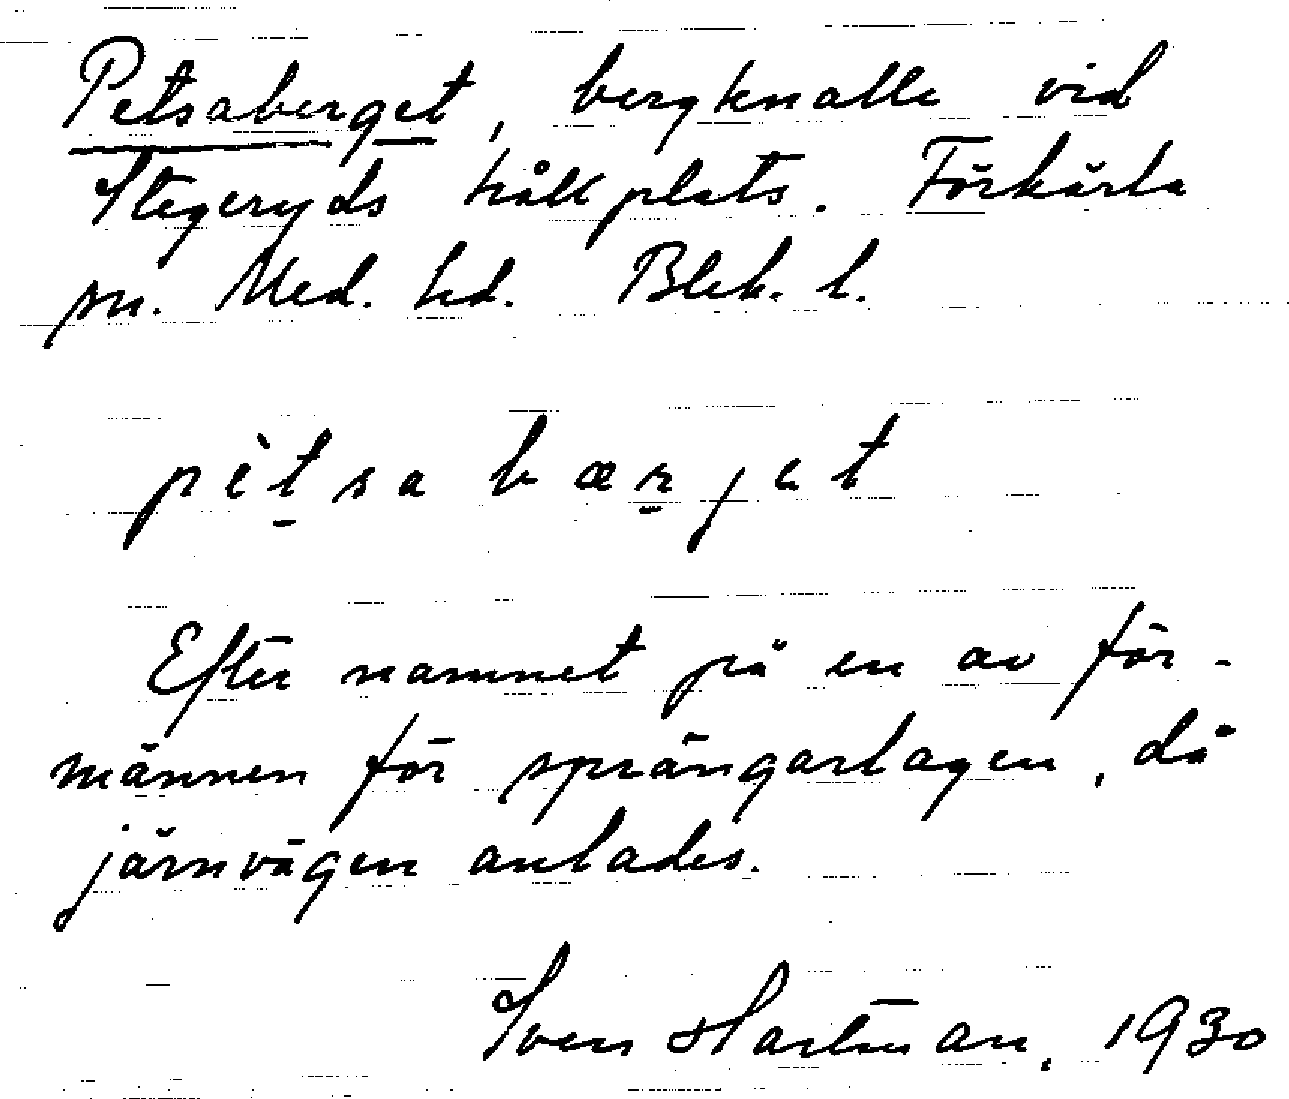 Petsaberget, bergknalle vid
Stegeryds hållplats. Förkärla
sn. Med. hd. Blek. l.
pètsabærjet
Efter namnet på en av för-
männen för sprängarlagen, då
järnvägen anlades.
Sven Hartman, 1930